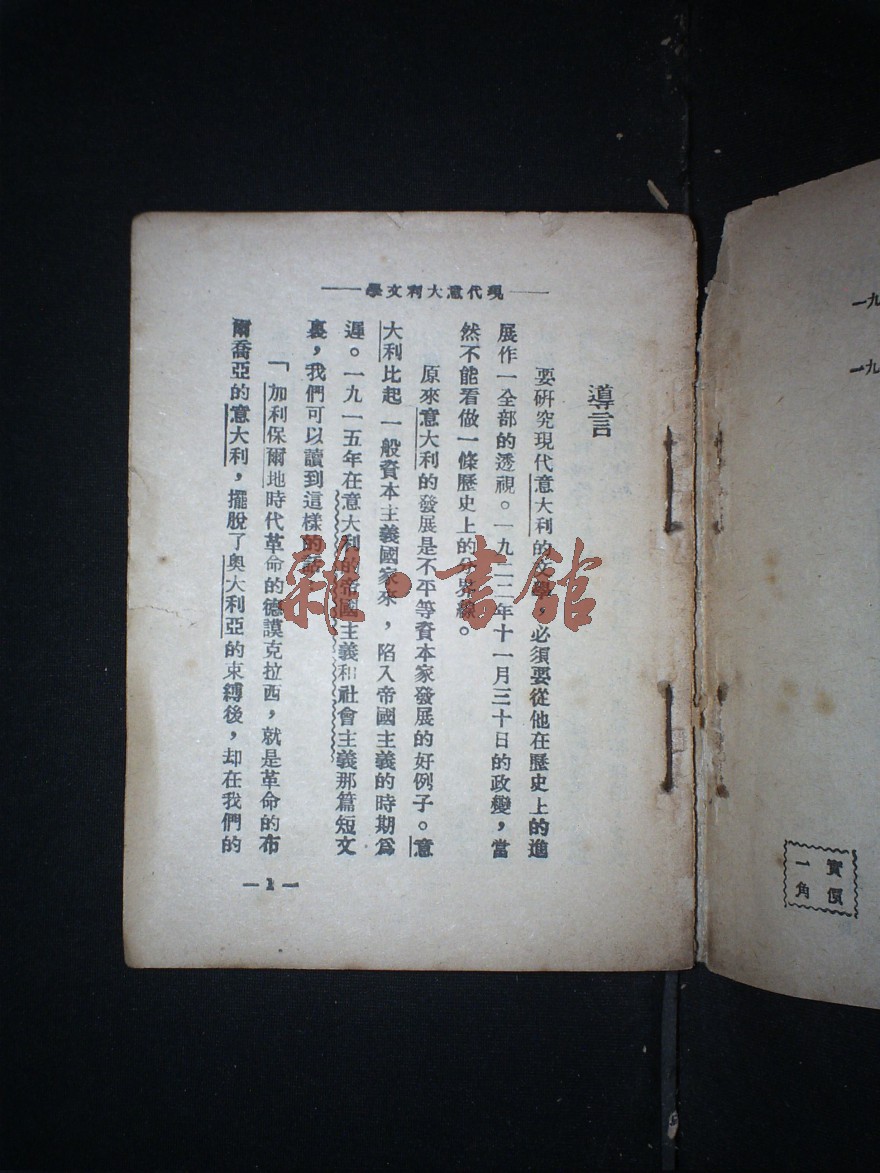 現代意大利文學
導言
要研究現代意大利的文學，必須要從他在歷史上的進
展作一全部的透視。一九二二年十一月三十日的政變，當
然不能看做一條歷史上的分界線。
原來意大利的發展是不平等資本家發展的好例子。意
大利比起一般資本主義國家來，陷入帝國主義的時期爲
遲。一九一五年在意大利的帝國主義和社會主義那篇短文
裏，我們可以讀到這樣的話：
「加利保爾地時代革命的德謨克拉西，就是革命的布
爾喬亞的意大利，擺脫了奧大利亞的束縛後，却在我們的
—1—
一九
一九
實價
一角
雜·書館